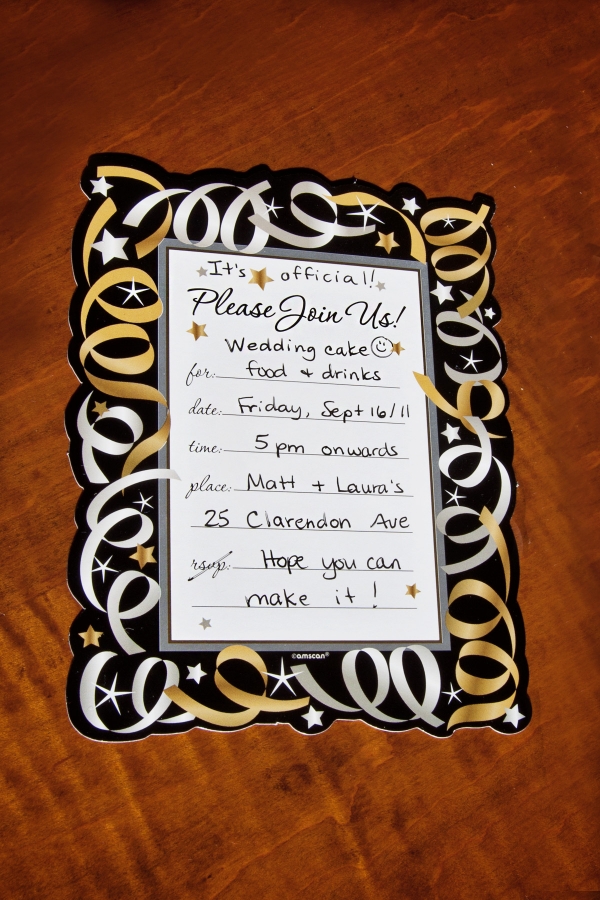 It's official!
Please Join Us!
Wedding cake
for: food + drinks
date: Friday, Sept 16/11
time: 5 pm onwards
place: Matt + Laura's
25 Clarendon Ave
rsvp: Hope you can
make it!
©amscan®